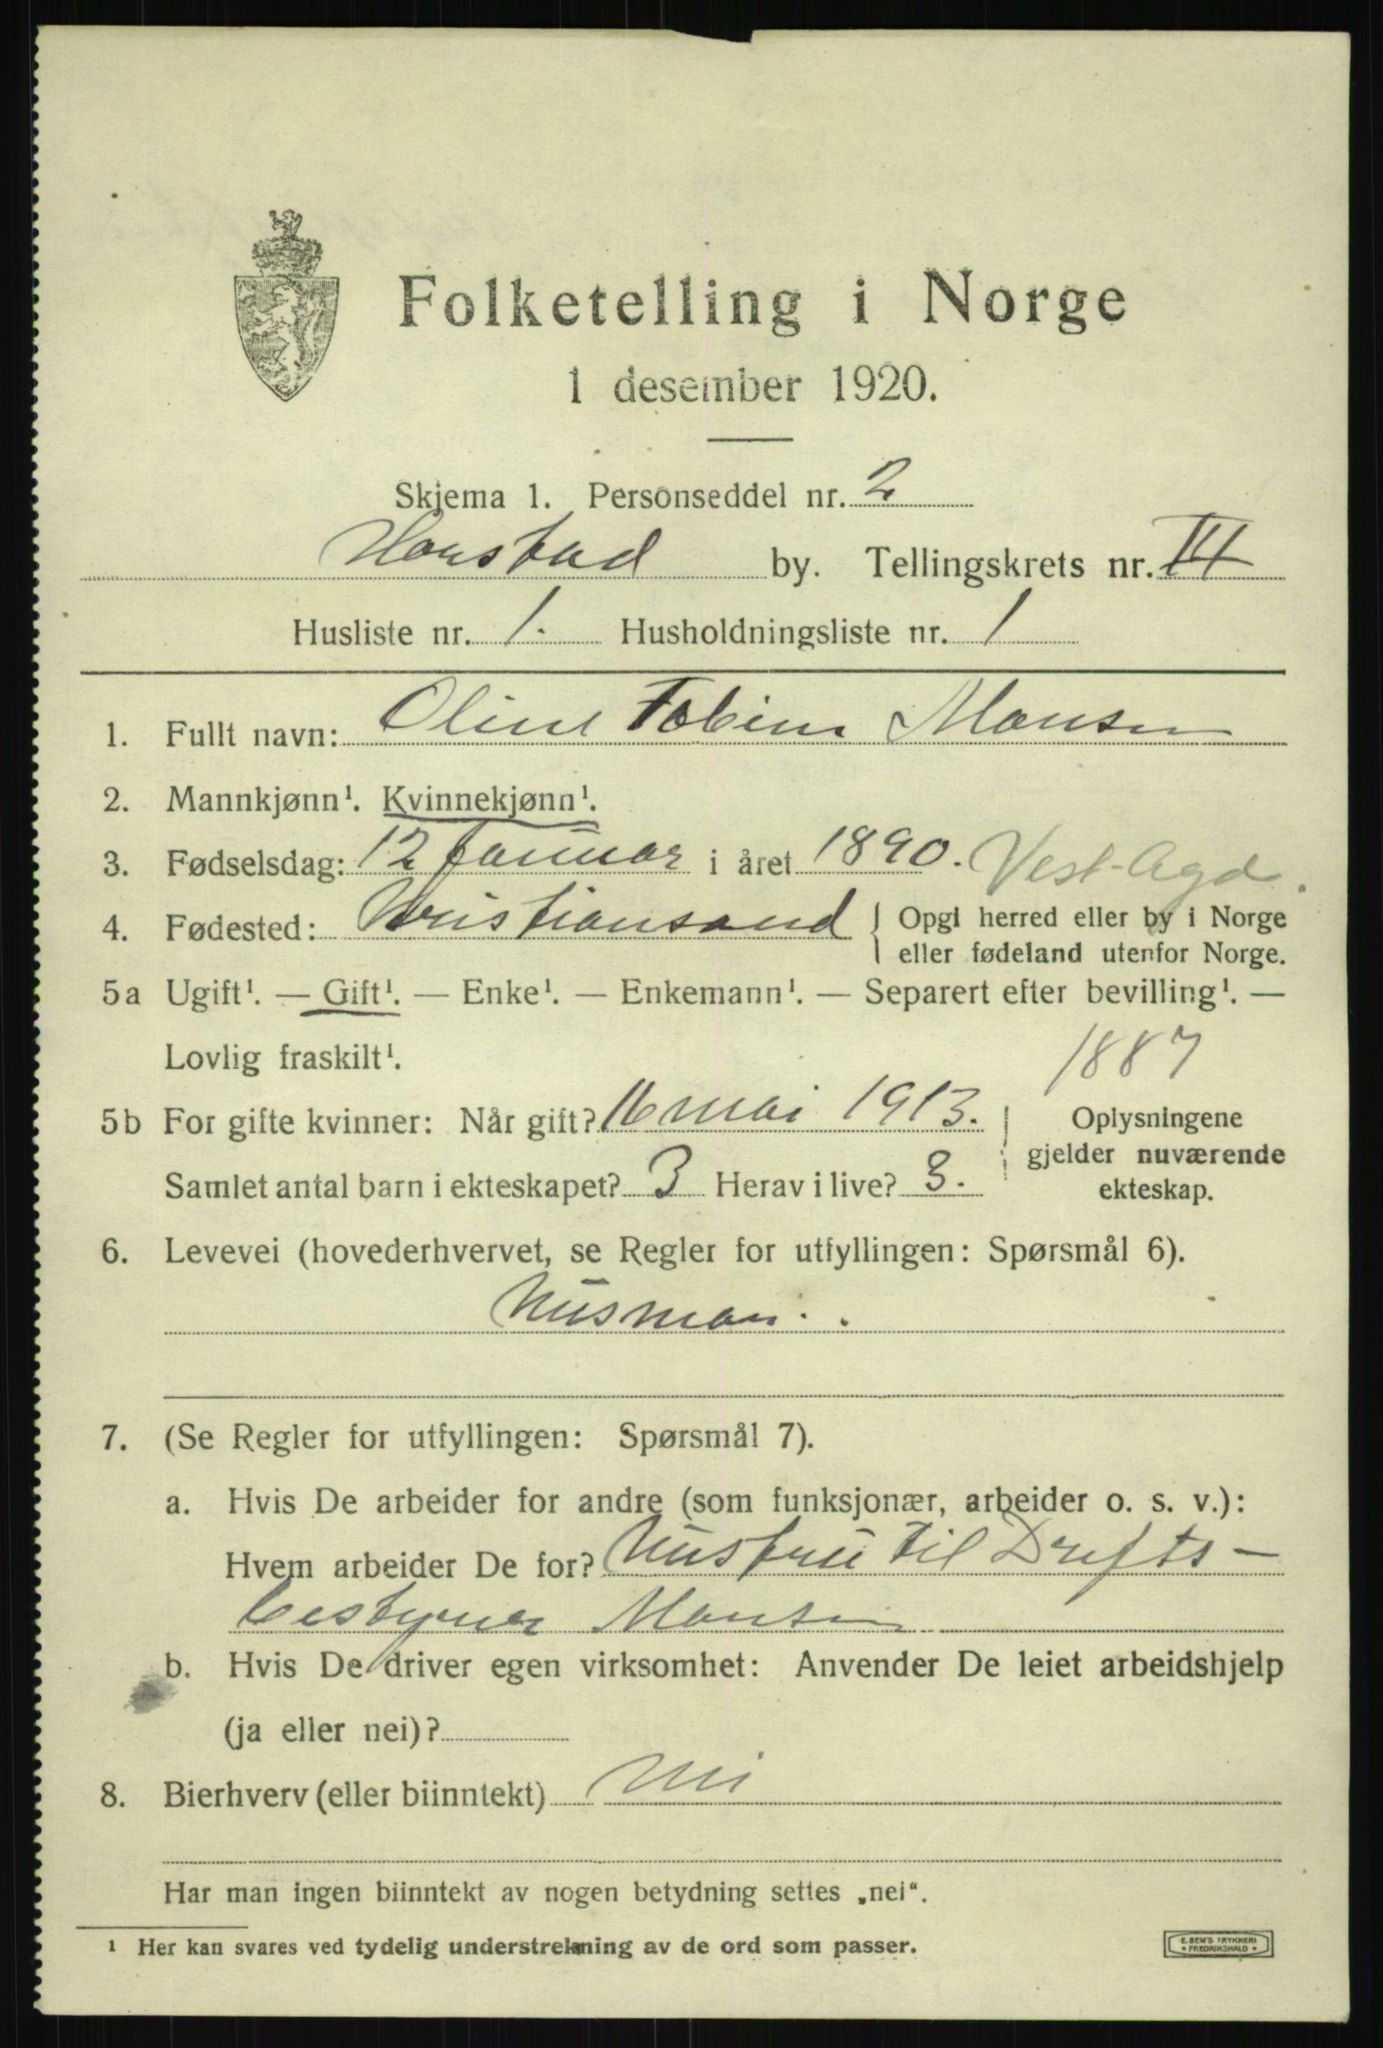 Folketelling i Norge
1 desember 1920.
Skjema 1. Personseddel nr. 2
Harstad by. Tellingskrets nr. III
Husliste nr. 1. Husholdningsliste nr. 1
1. Fullt navn: Oline Tobine Monsen
2. Mannkjønn¹. Kvinnekjønn¹.
3. Fødselsdag: 12 Januar i året 1890. Vest-Agd.
4. Fødested: Kristiansand { Opgi herred eller by i Norge
eller fødeland utenfor Norge.
5a Ugift¹. — Gift¹. — Enke¹. — Enkemann¹. — Separert efter bevilling¹. —
Lovlig fraskilt¹.
1887
5b For gifte kvinner: Når gift? 16 mai 1913. Oplysningene
gjelder nuværende
Samlet antal barn i ekteskapet? 3 Herav i live? 3. ekteskap.
6. Levevei (hovederhvervet, se Regler for utfyllingen: Spørsmål 6).
Husmor.
7. (Se Regler for utfyllingen: Spørsmål 7).
a. Hvis De arbeider for andre (som funksjonær, arbeider o. s. v.):
Hvem arbeider De for? Hustru til Drifts-
bestyrer Monsen
b. Hvis De driver egen virksomhet: Anvender De leiet arbeidshjelp
(ja eller nei)?
8. Bierhverv (eller biinntekt) Nei
Har man ingen biinntekt av nogen betydning settes „nei“.
¹ Her kan svares ved tydelig understrekning av de ord som passer.
E. SEM'S TRYKKERI
* FREDRIKSHALD *